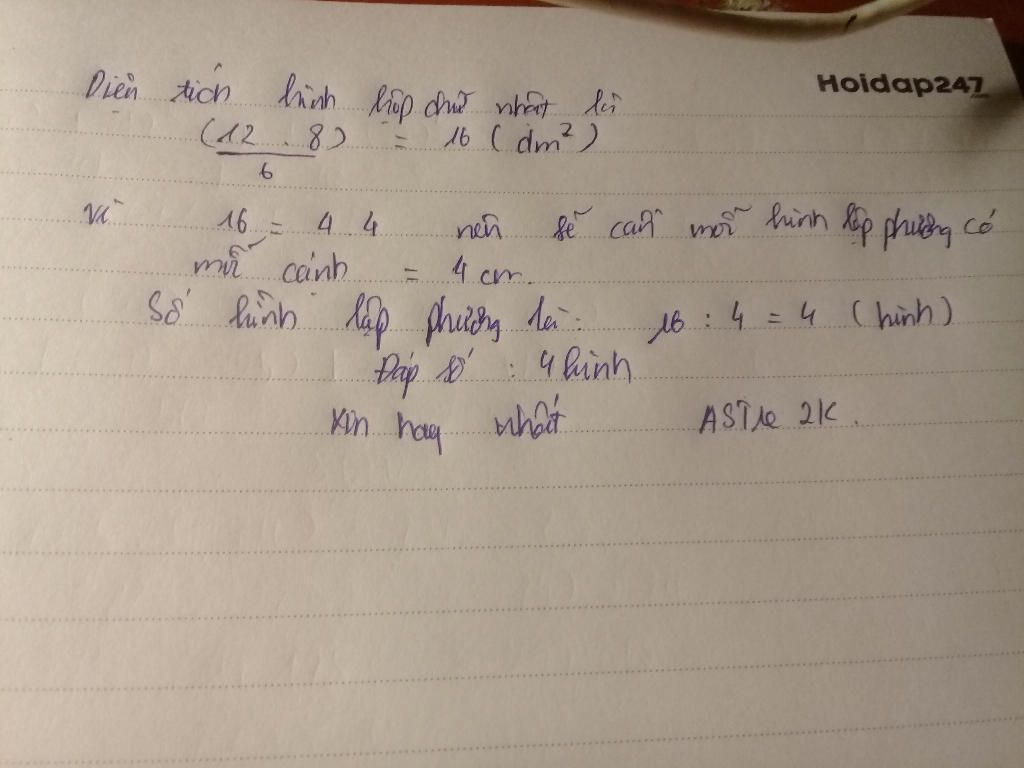 Hoidap247
Diện tích hình hộp chữ nhật là
(12 . 8) / 6 = 16 (dm²)
Vì 16 = 4 . 4 nên sẽ cần mỗi hình lập phương có
mỗi cạnh = 4 cm.
Số hình lập phương là : 16 : 4 = 4 (hình)
Đáp số : 4 hình
Xin hay nhất 2K.